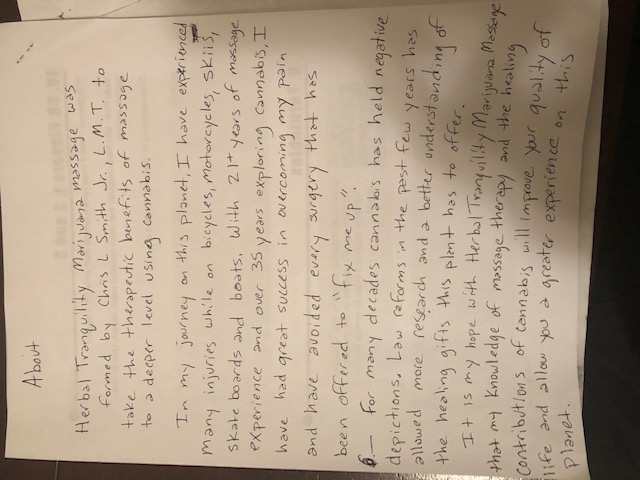 About
Herbal Tranquility Marijuana massage was
formed by Chris L Smith Jr., L.M.T. to
take the therapeutic benefits of massage
to a deeper level using cannabis.
In my journey on this planet, I have experienced
many injuries while on bicycles, motorcycles, skiis,
skate boards and boats. With 21+ years of massage
experience and over 35 years exploring cannabis, I
have had great success in overcoming my pain
and have avoided every surgery that has
been offered to "fix me up".
— For many decades cannabis has held negative
depictions. Law reforms in the past few years has
allowed more research and a better understanding of
the healing gifts this plant has to offer.
It is my hope with Herbal Tranquility Marijuana Massage
that my knowledge of massage therapy and the healing
contributions of cannabis will improve your quality of
life and allow you a greater experience on this
planet.